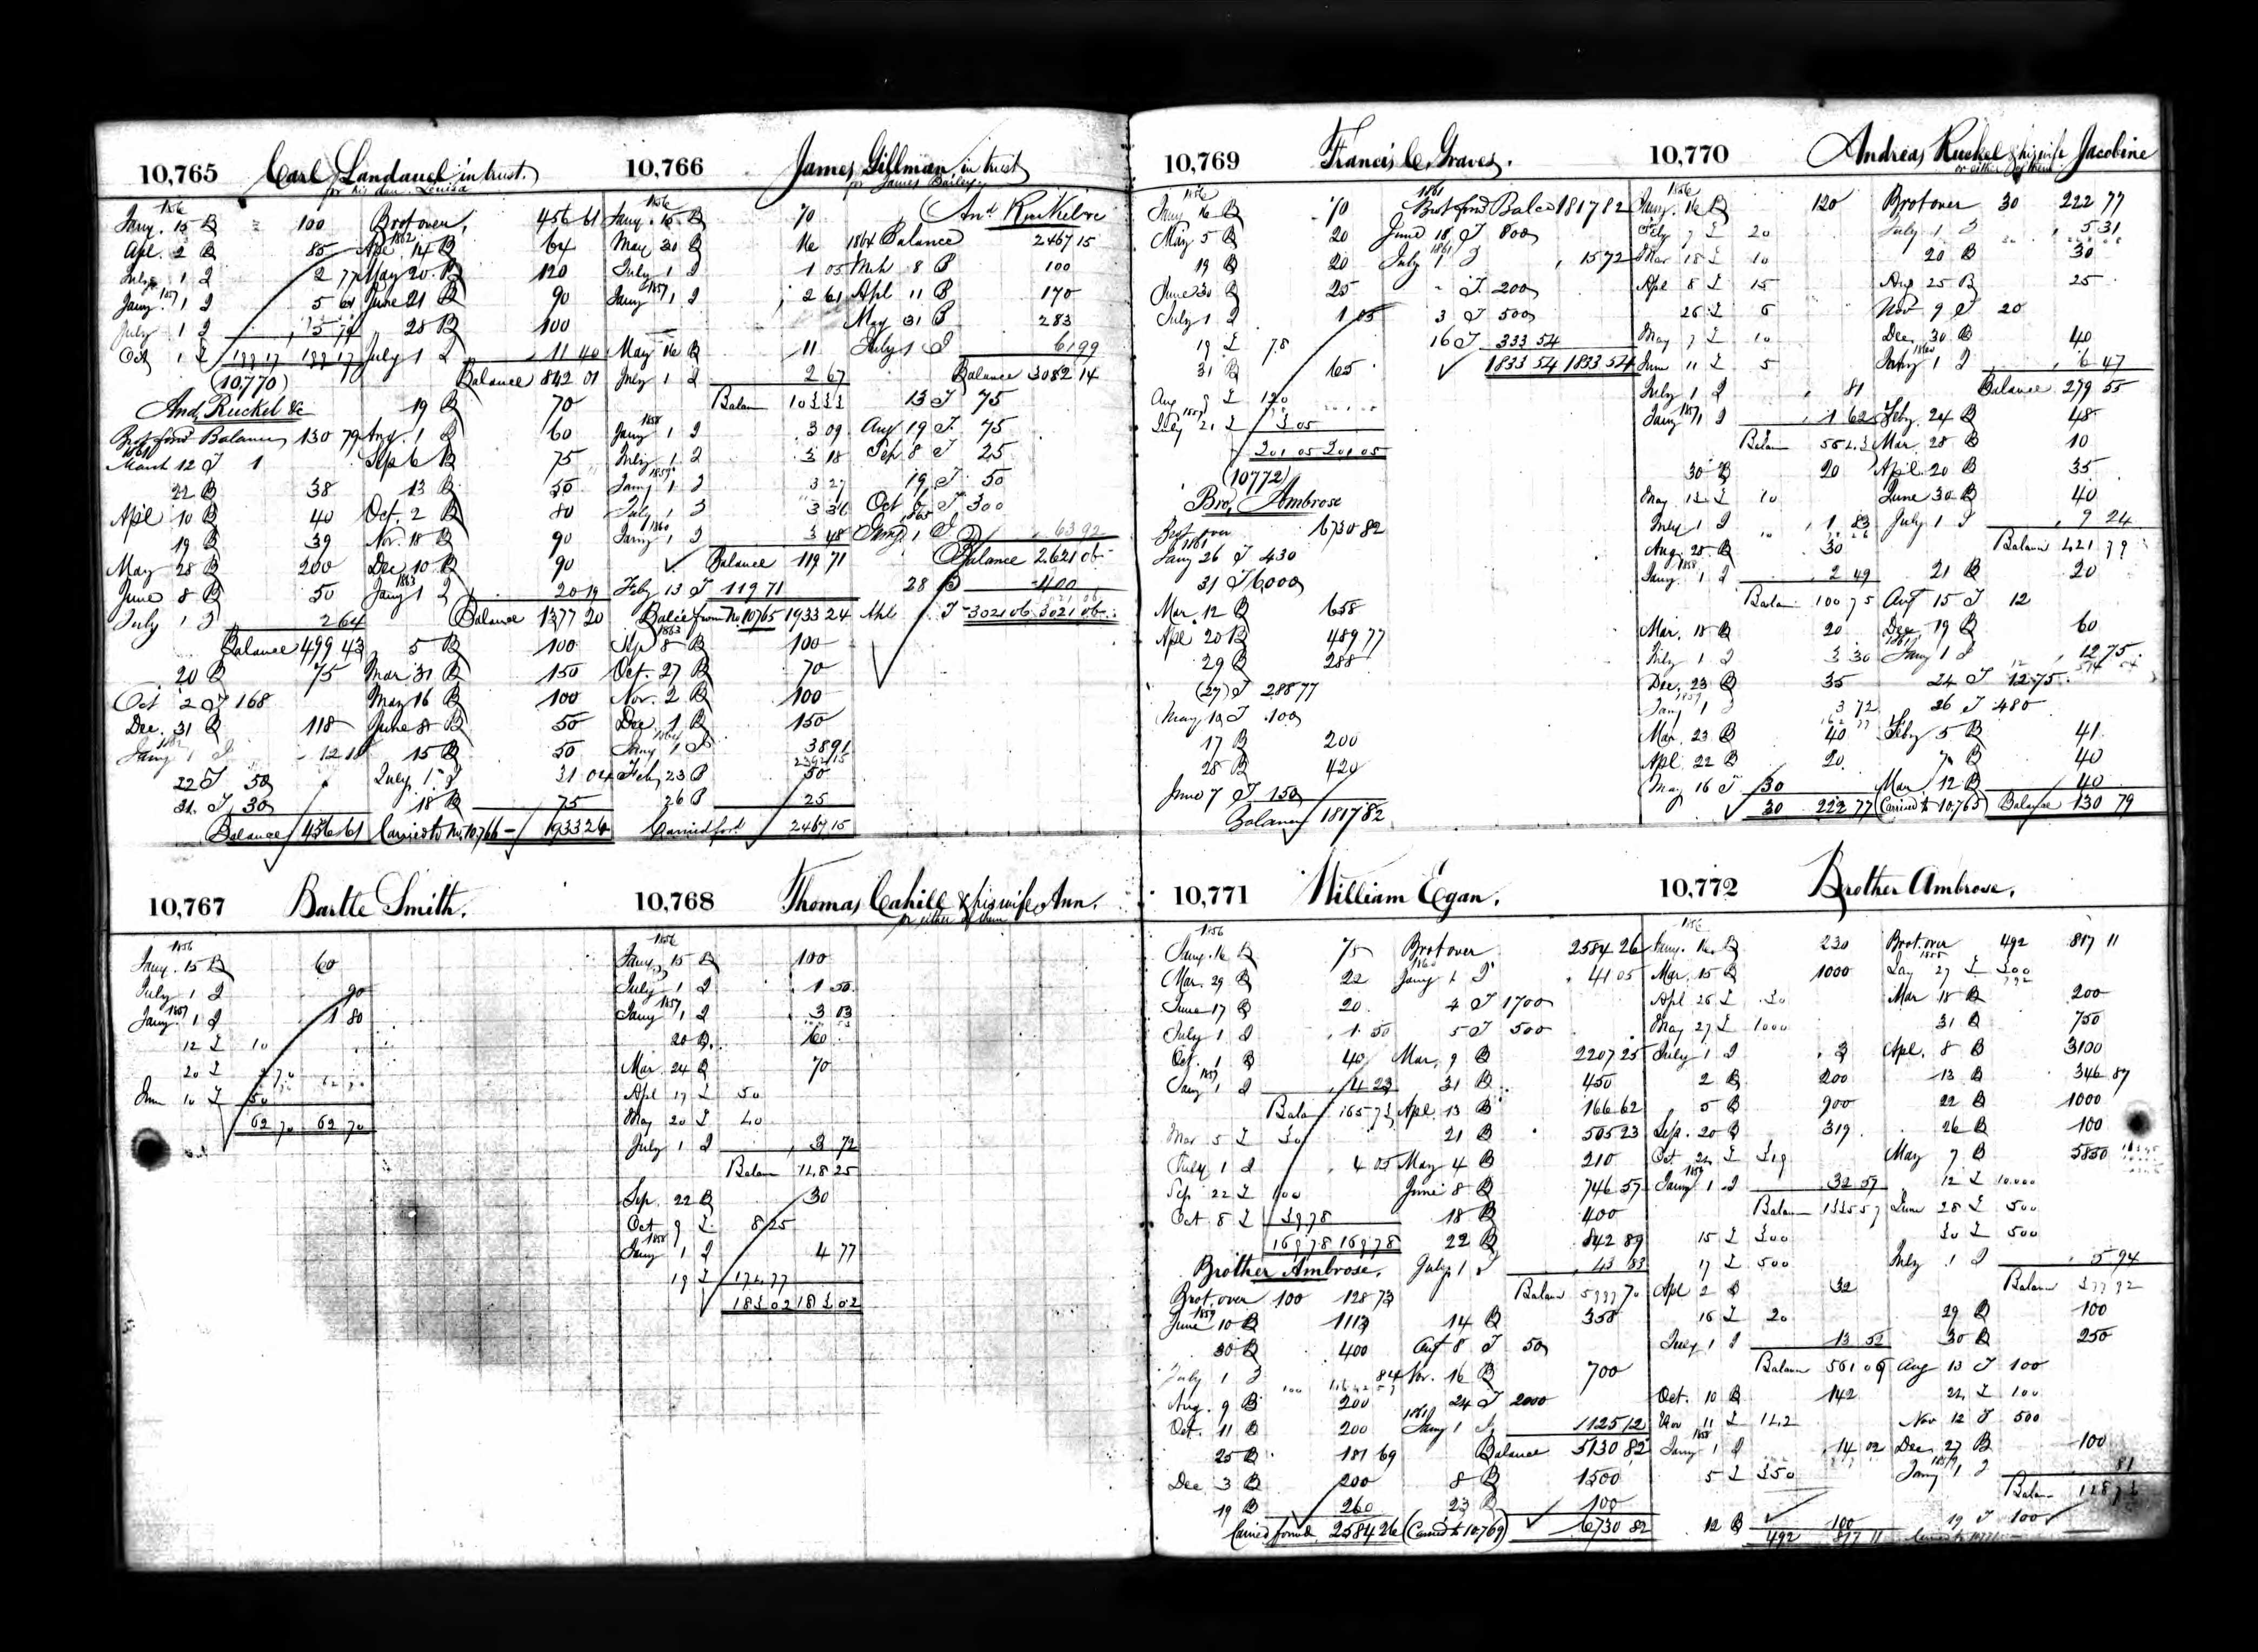 10,765 Carl Landauel in trust.
for his dau. Louisa
1856
Jany. 15 B 100
Apl. 2 B 85
July 1 I 2 77
1857
Jany. 1 I 5 61
July 1 I
Oct 1 I 199 17 199 17
(10,770)
And. Ruckel &c
Brot ford Balance 130 79
1861
March 12 I 1
22 B 38
Apl 10 B 40
19 B 39
May 28 B 200
June 8 B 50
July 1 I 2 64
Balance 499 43
20 B 75
Oct 2 I 168
Dec. 31 B 118
1862
Jany 1 I 12 18
22 I 50
31 I 30
Balance 456 61
Brot over, 456 61
1862
Apl. 14 B 64
May 20 B 120
June 21 B 90
28 B 100
July 1 I 11 40
Balance 842 01
19 B 70
Aug. 1 B 60
Sep 6 B 75
13 B 50
Oct. 2 B 80
Nov. 18 B 90
Dec. 10 B 90
1863
Jany 1 I 20 19
Balance 1377 20
5 B 100
Mar 31 B 150
May 16 B 100
June 8 B 50
15 B 50
July 1 I 31 04
18 B 75
Carried to No. 10,766 1933 24
10,766 James Gillman, in trust
for James Bailey
1856
Jany. 15 B 70
May 30 B
July 1 I 1 05
1857
Jany 1 I 2 61
May 16 B 11
July 1 I 2 67
Balan 103 33
1858
Jany 1 I 3 09
July 1 I 3 18
1859
Jany 1 I 3 27
July 1 I 3 36
1860
Jany. 1 I 3 48
Balance 119 71
Feby 13 I 119 71
Balce from No. 10765 1933 24
1863
Sep 8 B 100
Oct. 27 B 70
Nov. 2 B 100
Dec 1 B 150
1864
Jany 1 I 38 91
2392 15
Feb, 23 B 50
26 B 25
Carried ford 2467 15
And Ruckel &c
1864 Balance 2467 15
Mch 8 B 100
Apl 11 B 170
May 31 B 283
July 1 I 61 99
Balance 3082 14
13 I 75
Aug 19 I 75
Sep 8 I 25
19 I 50
Oct 6 I 300
1865
Jany 1 I 63 92
Balance 2621 06
28 B 400
Apl I 3021 06 3021 06
10,769 Francis C. Graves.
1856
Jany 16 B 70
May 5 B 20
19 B 20
June 30 B 25
July 1 I 1 05
19 I 78
31 B 65
Aug 9 I 120
July 21 I 3 05
201 05 201 05
(10772)
Bro. Ambrose
Brot over 6730 82
1861
Jany 26 I 430
31 I 6,000
Mar. 12 B 658
Apl 20 B 489 77
29 B 288
(27) I 288 77
May 13 I 100
17 B 200
28 B 420
June 7 I 150
Balance 1817 82
1861
Brot ford Balce 1817 82
June 18 I 800
1861
July 1 I 15 72
I 200
3 I 500
16 I 333 54
1833 54 1833 54
10,770 Andreas Ruckel & his wife Jacobine
or either of them
1856
Jany. 16 B 120
July 7 I 20
Mar 18 I 10
Apl 8 I 15
26 I 5
May 7 I 10
June 11 I 5
July 1 I 81
1857
Jany 1 I 1 62
Balan
30 B 20
May 13 I 10
July 1 I 1 83
Aug. 28 B 30
1858
Jany. 1 I 2 49
Balan 100 75
Mar. 18 B 20
July 1 I 3 30
Dec. 23 B 35
1859
Jany 1 I 3 72
Mar. 23 B 40
Apl. 22 B 20
May 16 I 30
30 222 77
Brot over 30 222 77
July 1 I 5 31
20 B 30
Aug 25 B 25
Nov 9 I 20
Dec. 30 B 40
1860
Jany 1 I 6 47
Balance 279 55
Feby. 24 B 48
Mar. 28 B 10
April 20 B 35
June 30 B 40
July 1 I 9 24
Balance 421 79
21 B 20
Aug 15 I 12
Dec. 19 B 60
1861
Jany 1 I 12 75
24 I 12 75
26 I 480
Feby 5 B 41
7 B 40
Mar. 12 B 40
(Carried to 10,765) Balance 130 79
10,767 Bartle Smith.
1856
Jany. 15 B 60
July 1 I 90
1857
Jany. 1 I 1 80
12 I 10
20 I 2 70
Jun 10 I 50
62 70 62 70
10,768 Thomas Cahill & his wife Ann.
or either of them
1856
Jany. 15 B 100
July 1 I 1 50
1857
Jany 1 I 3 03
20 B. 60
Mar. 24 B 70
Apl 17 I 50
May 20 I 40
July 1 I 3 72
Balan 148 25
Sep. 22 B 30
Oct 9 I 8 25
1858
Jany 1 I 4 77
19 I 174 77
183 02 183 02
10,771 William Egan.
1856
Jany. 16 B 75
Mar. 29 B 22
June 17 B 20
July 1 I 1 50
Oct. 1 B 40
1857
Jany 1 I 4 23
Balan 165 73
Mar 5 I 30
July 1 I 4 05
Sep 22 I 100
Oct 8 I 39 78
169 78 169 78
Brother Ambrose.
Brot. over 100 128 73
1859
June 10 B 1113
30 B 400
July 1 I 84
Aug. 9 B 200
Oct. 11 B 200
25 B 181 69
Dec 3 B 200
19 B 260
Carried forwd 2584 26
Brot over 2584 26
1860
Jany 1 I 41 05
4 I 1700
5 I 500
Mar. 9 B 2207 25
31 B 450
Apl. 13 B 166 62
21 B 505 23
May 4 B 210
June 8 B 746 57
18 B 400
22 B 842 89
July 1 I 43 83
Balan 5997 70
14 B 358
Aug 8 I 50
Nov. 16 B 700
24 I 2000
1861
Jany 1 I 125 12
Balance 5130 82
8 B 1500
23 B 100
(Carried to 10,769) 6730 82
10,772 Brother Ambrose.
1856
Jany. 16 B 230
Mar. 15 B 1000
Apl 26 I 30
May 27 I 1000
July 1 I 3
2 B 200
5 B 900
Sep. 20 B 319
Oct 24 I 319
1857
Jany 1 I 32 57
Balan 1335 57
15 I 300
17 I 500
Apl 2 B 32
16 I 20
July 1 I 13 52
Balan 561 09
Oct. 10 B 142
Nov 11 I 142
1858
Jany 1 I 14 02
5 I 350
12 B 100
492 817 11
Brot. over 492 817 11
1858
Jany 27 I 300
Mar 18 B 200
31 B 750
Apl. 8 B 3100
13 B 346 87
22 B 1000
26 B 100
May 7 B 5850
12 I 10.000
June 28 I 500
30 I 500
July 1 I 5 94
Balan
29 B 100
30 B 250
Aug 13 I 100
24 I 100
Nov 12 I 500
Dec. 27 B 100
1859
Jany 1 I 81
Balan 128 73
19 I 100